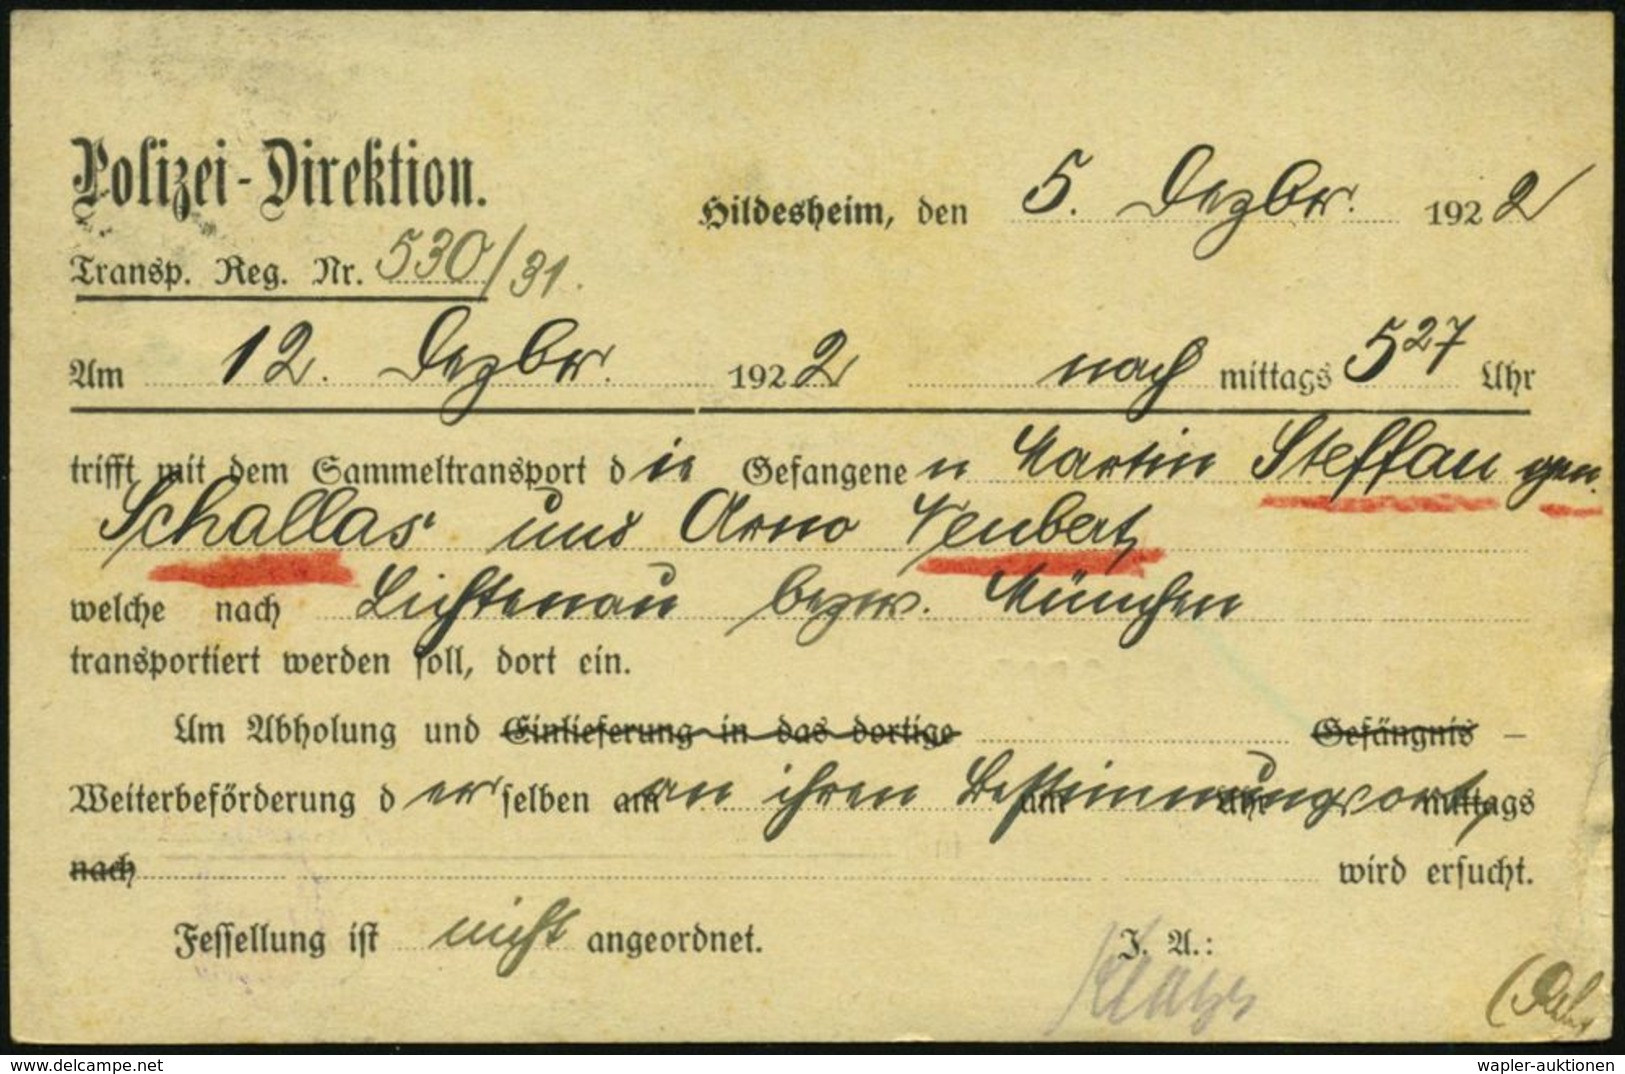 Polizei-Direktion.
Hildesheim, den 5. Dezbr. 1922
Transp. Reg. Nr. 530/31.
Am 12. Dezbr. 1922 nach mittags 5 27 Uhr
trifft mit dem Sammeltransport die Gefangenen Martin Steffan gen.
Schallas und Arno Neubert,
welche nach Lichtenau bezw. München
transportiert werden soll, dort ein.
Um Abholung und Einlieferung in das dortige Gefängnis –
Weiterbeförderung derselben am an ihren Bestimmungsort, um Uhr mittags
nach wird ersucht.
Fesselung ist nicht angeordnet.
J. A.:
delcampe.net
wapler-auktionen